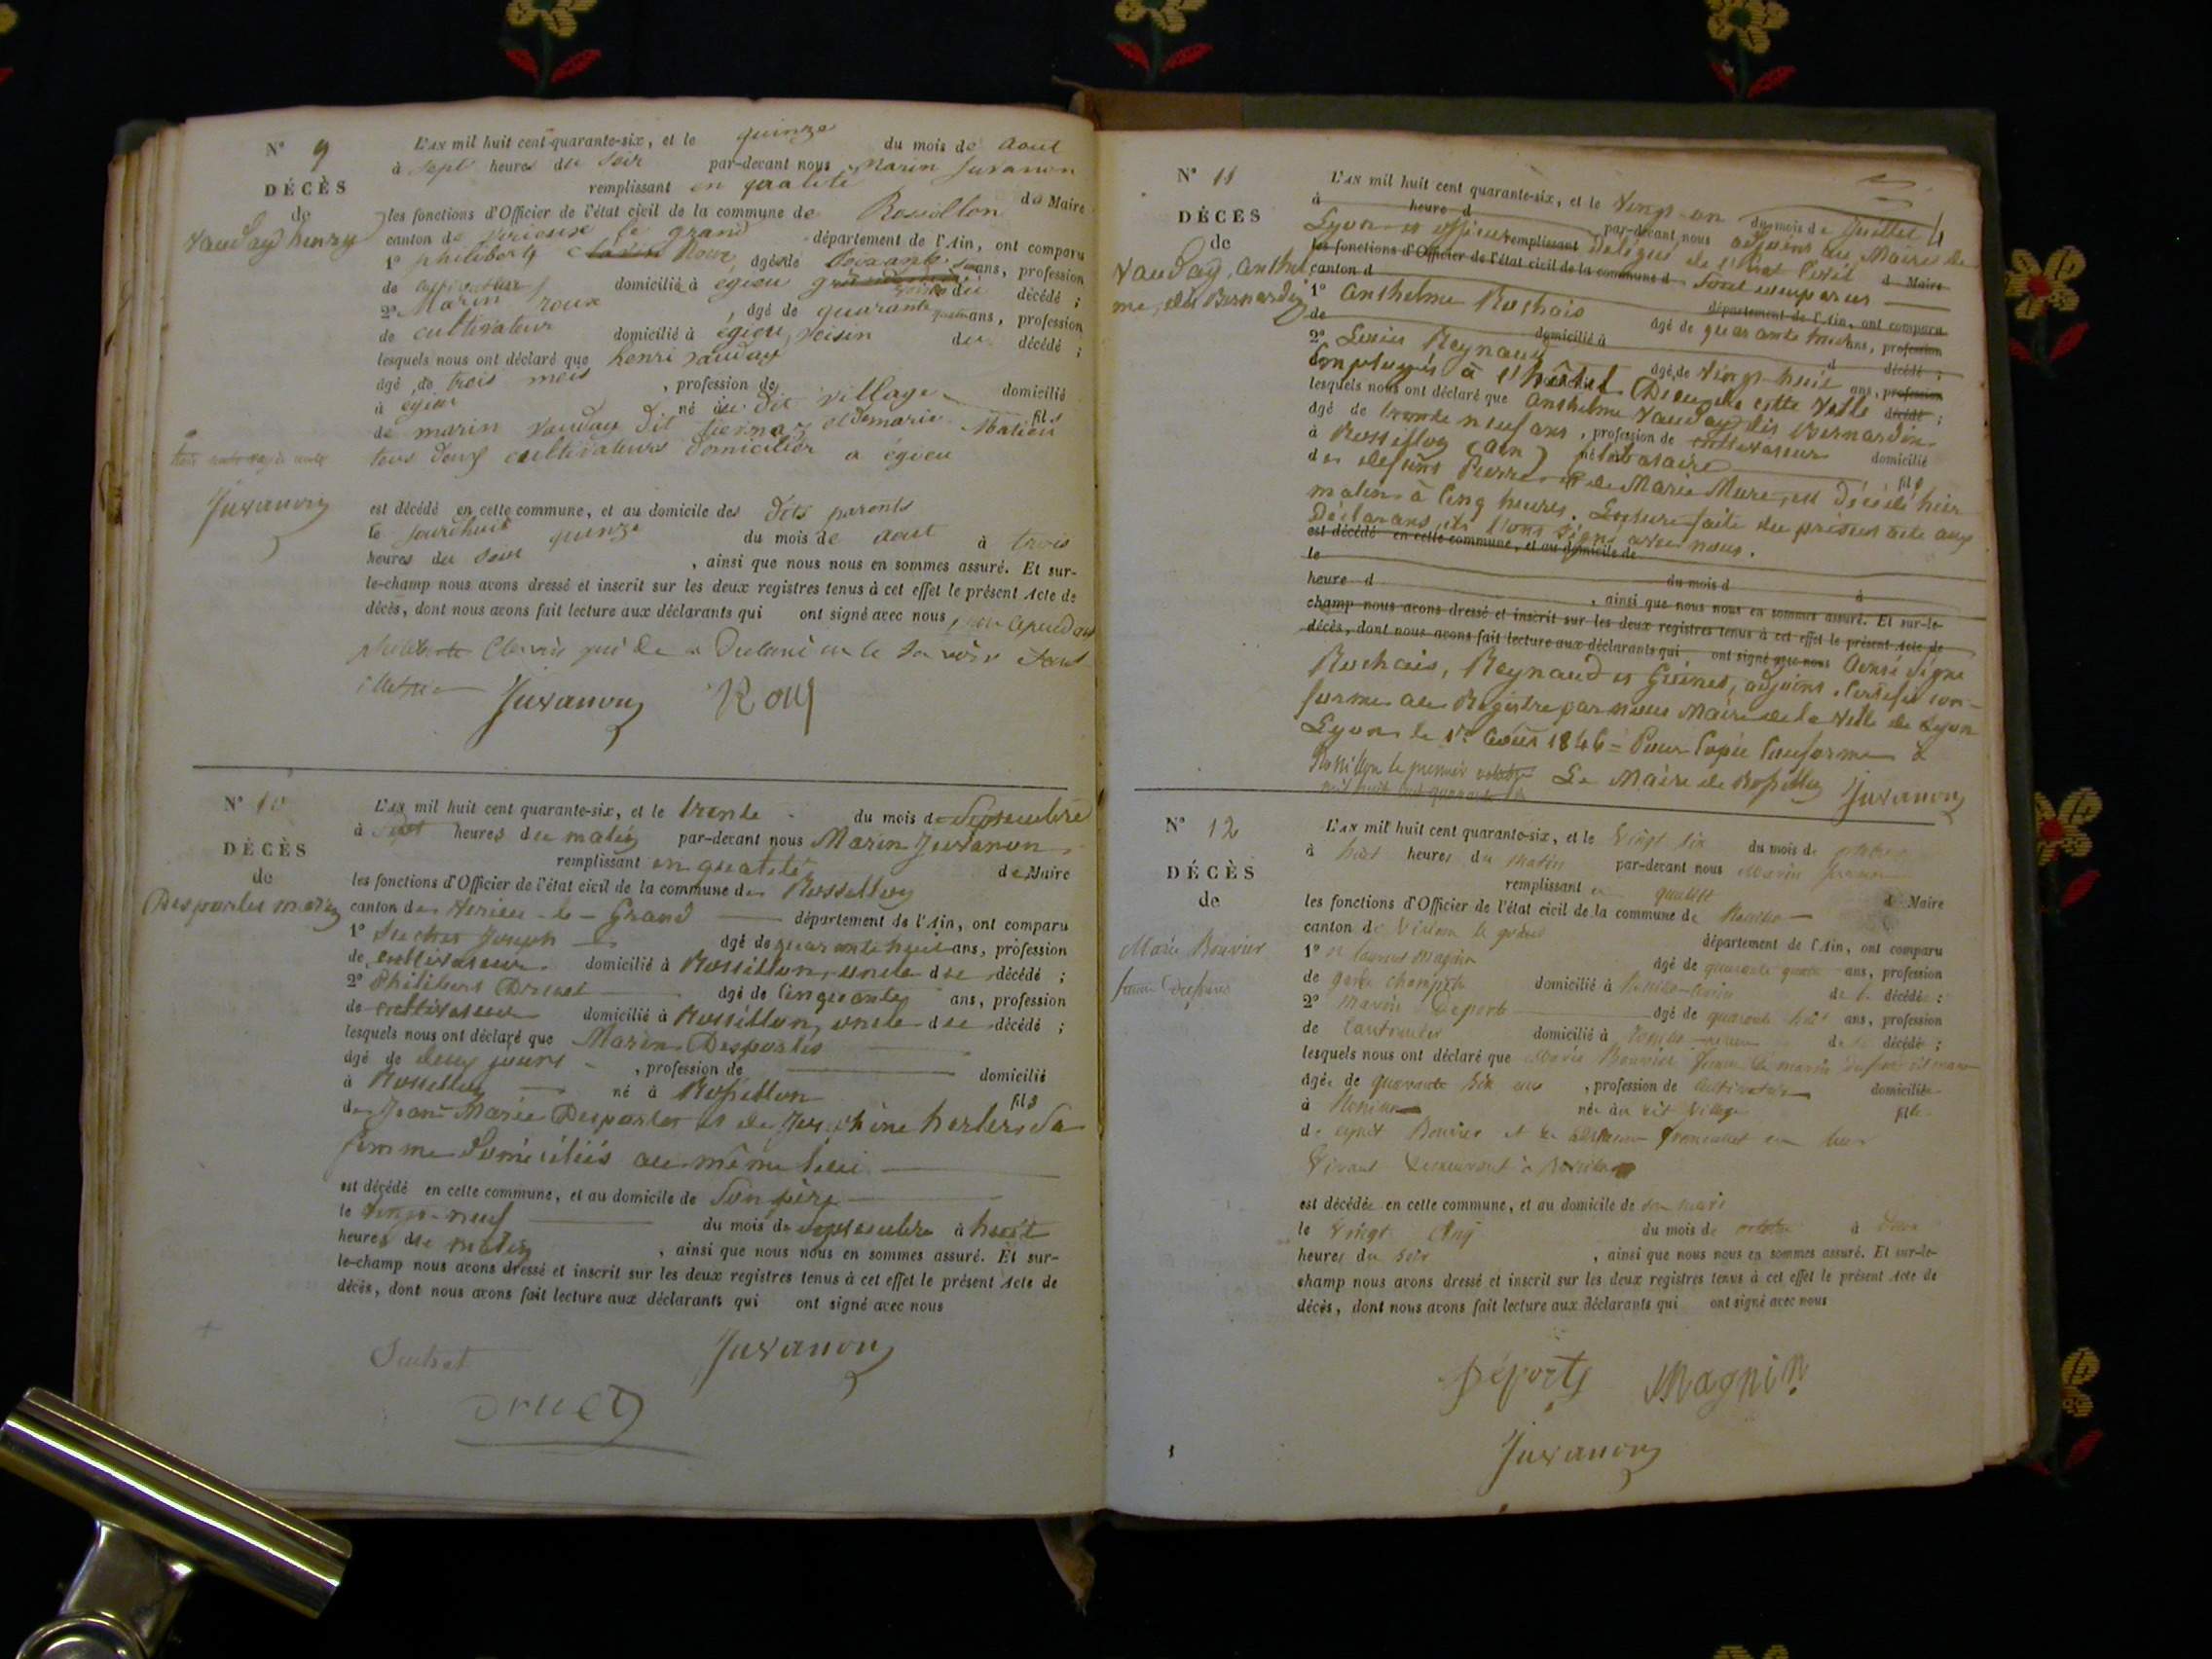 N° 9
DÉCÈS
de
Vauday henry
Juvanon
L'AN mil huit cent quarante-six, et le quinze du mois de aout
à sept heures du soir par-devant nous Marin Juvanon
remplissant en qualité de Maire
les fonctions d'Officier de l'état civil de la commune de Rossillon
canton de virieux le grand département de l'Ain, ont comparu
1° philibert Clavin Roux, âgé de soixante ans, profession
de cultivateur domicilié à égieu du décédé ;
2° Marin roux, âgé de quarante ans, profession
de cultivateur domicilié à égieu, voisin du décédé ;
lesquels nous ont déclaré que henri vauday
âgé de trois mois, profession de domicilié
à égieu né au dit village fils
de marin vauday dit et de marie Matieu
tous deux cultivateurs domiciliés a égieu
est décédé en cette commune, et au domicile des dits parents
le jourdhui quinze du mois de aout à trois
heures du soir, ainsi que nous nous en sommes assuré. Et sur-
le-champ nous avons dressé et inscrit sur les deux registres tenus à cet effet le présent Acte de
décès, dont nous avons fait lecture aux déclarants qui ont signé avec nous
philiberte Clavin qui de a Declaré ne le savoir
Juvanon Roux
N° 10
DÉCÈS
de
Desportes Marin
L'AN mil huit cent quarante-six, et le trente du mois de Septembre
à sept heures du matin par-devant nous Marin Juvanon
remplissant en qualité de Maire
les fonctions d'Officier de l'état civil de la commune de Rossillon
canton de Virieu-le-Grand département de l'Ain, ont comparu
1° Suchet Joseph âgé de quarante huit ans, profession
de cultivateur domicilié à Rossillon, oncle du décédé ;
2° Philibert Druet âgé de Cinquante ans, profession
de cultivateur domicilié à Rossillon, oncle du décédé ;
lesquels nous ont déclaré que Marin Desportes
âgé de deux jours, profession de domicilié
à Rossillon né à Rossillon fils
de Jean-Marie Desportes et de herbers Sa
femme Domiciliés au même lieu
est décédé en cette commune, et au domicile de Son père
le vingt-neuf du mois de septembre à huit
heures du matin, ainsi que nous nous en sommes assuré. Et sur-
le-champ nous avons dressé et inscrit sur les deux registres tenus à cet effet le présent Acte de
décès, dont nous avons fait lecture aux déclarants qui ont signé avec nous
Suchet Juvanon
Druet
N° 11
DÉCÈS
de
Vauday, Anthel
me, dit Bernardin
L'AN mil huit cent quarante-six, et le Vingt un du mois de Juillet
à heure d par-devant nous adjoint au Maire de
Lyon et officier remplissant Délégué de l'état Civil d Maire
les fonctions d'Officier de l'état civil de la commune d Sont comparus
canton d département de l'Ain, ont comparu
1° Anthelme Rochais âgé de quarante trois ans, profession
de domicilié à d décédé ;
2° Louis Reynaud âgé de Vingt-huit ans, profession
Employés à l'hôtel Dieu de cette Ville décédé ;
lesquels nous ont déclaré que Anthelme Vauday dit Bernardin
âgé de trente neuf ans, profession de cultivateur domicilié
à Rossillon (ain) né Célibataire fils
des défunts Pierre et de Marie Mure, est Décédé hier
matin à Cinq heures. Lecture faite du présent acte aux
Déclarans, ils l'ont signé avec nous.
est décédé en cette commune, et au domicile de
le du mois d à
heure d, ainsi que nous nous en sommes assuré. Et sur-le-
champ nous avons dressé et inscrit sur les deux registres tenus à cet effet le présent Acte de
décès, dont nous avons fait lecture aux déclarants qui ont signé avec nous Ainsi Signé
Rochais, Reynaud et Guinet, adjoint. Certifié con-
forme au Registre par nous Maire de la Ville de Lyon
Lyon le 1er Août 1846 = Pour Copie Conforme à
Rossillon le premier Le Maire de Rossillon Juvanon
mil huit cent quarante six
N° 12
DÉCÈS
de
Marie Bouvier
L'AN mil huit cent quarante-six, et le Vingt six du mois de octobre
à huit heures du matin par-devant nous Marin Juvanon
remplissant en qualité d Maire
les fonctions d'Officier de l'état civil de la commune de
canton de Virieu le grand département de l'Ain, ont comparu
1° laurent magnin âgé de quarante quatre ans, profession
de garde champêtre domicilié à de la décédée ;
2° Marin Deporte âgé de quarante huit ans, profession
de domicilié à de la décédée ;
lesquels nous ont déclaré que Marie Bouvier femme de marin
âgée de quarante six ans, profession de cultivatrice domiciliée
à née au dit village fille
de Bouvier et de
Vivant
est décédée en cette commune, et au domicile de son mari
le Vingt Cinq du mois de octobre à
heures du soir, ainsi que nous nous en sommes assuré. Et sur-le-
champ nous avons dressé et inscrit sur les deux registres tenus à cet effet le présent Acte de
décès, dont nous avons fait lecture aux déclarants qui ont signé avec nous
Déporte Magnin
Juvanon